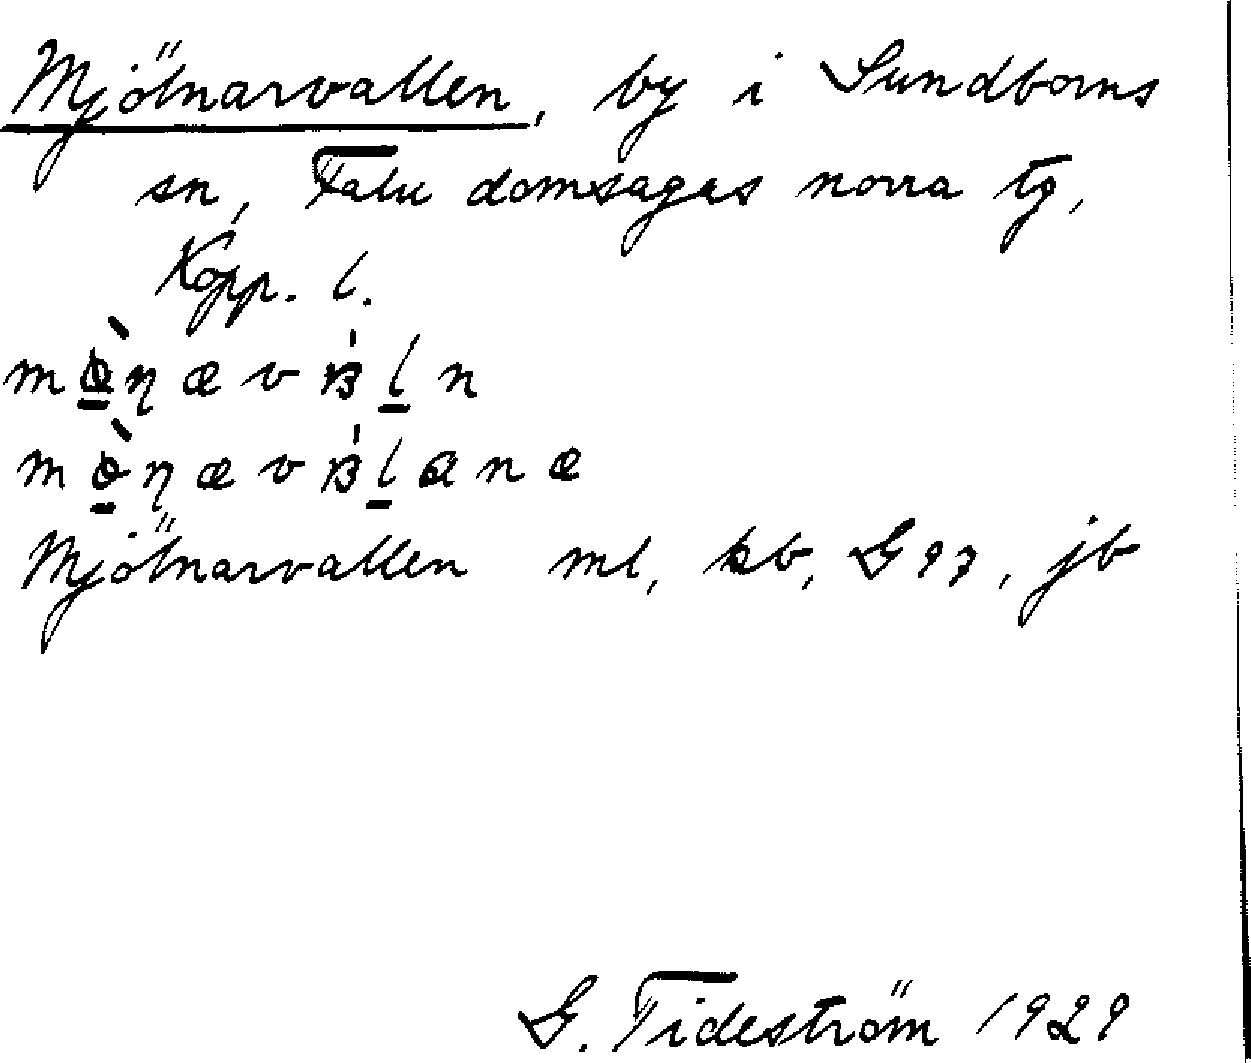 Mjölnarvallen, by i Sundborns
sn, Falu domsagas norra tg,
Kopp. l.
Mjölnarvallen ml, kb, G 97, jb
G. Tideström 1929